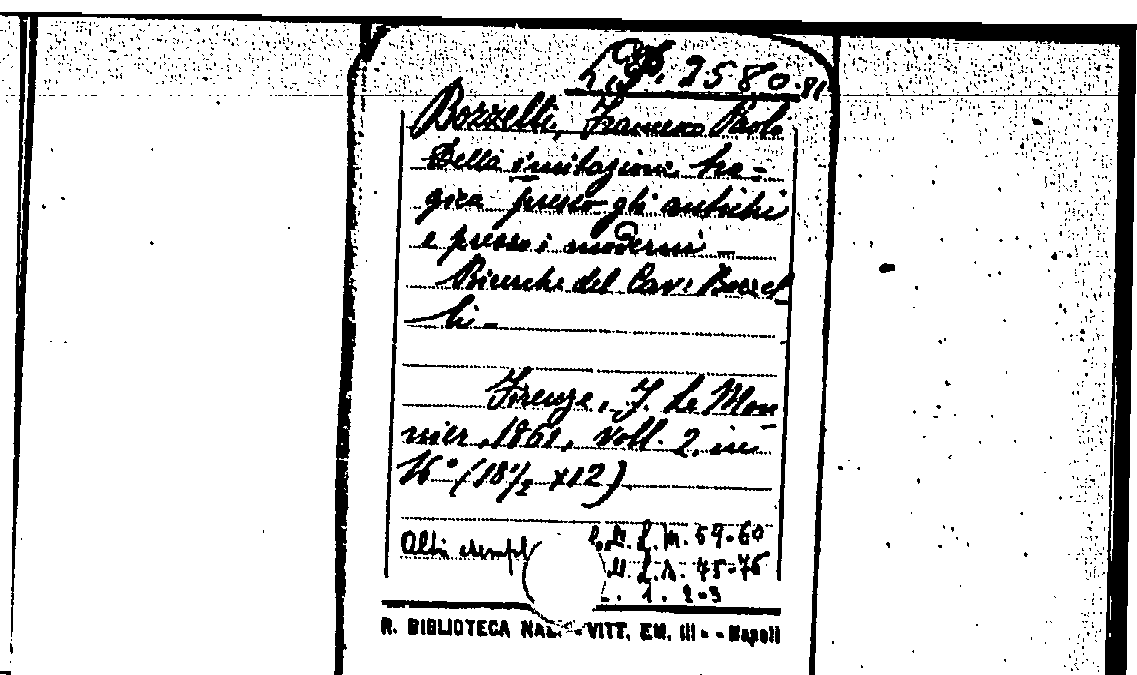 L. P. 2580-81
Bozzelli, Francesco Paolo
Della imitazione tra=
gica presso gli antichi
e presso i moderni -
Ricerche del Cav: Bozzel
li -
Firenze, F. Le Mon
nier, 1861, voll. 2, in
16° (18 1/2 x 12)
Altri esempl
59-60
75-76
1. 2-3
R. BIBLIOTECA NAZ. - VITT. EM. III - - Napoli